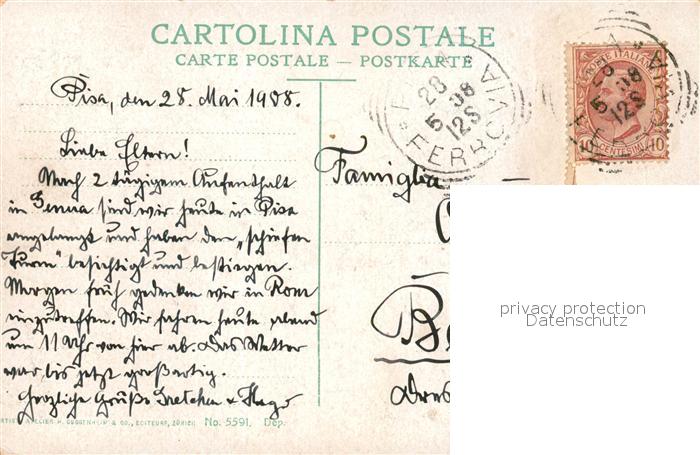 CARTOLINA POSTALE
CARTE POSTALE — POSTKARTE
Pisa, den 28. Mai 1908.
Liebe Eltern!
Nach 2 tägigem Aufenthalt
in Genua sind wir heute in Pisa
angelangt und haben den „schiefen
Turm" besichtigt und bestiegen.
Morgen früh gedenken wir in Rom
einzutreffen. Wir fahren heute abend
um 11 Uhr von hier ab. Das Wetter
war bis jetzt großartig.
Herzliche Grüße Gretchen & Hugo
ATELIER H. GUGGENHEIM & CO., EDITEURS, ZÜRICH No. 5591. Dep.
Famiglia
28
5 08
12S
FERROVIA
POSTE ITALIANE
5 08
12S
10 CENTESIMI 10
privacy protection
Datenschutz